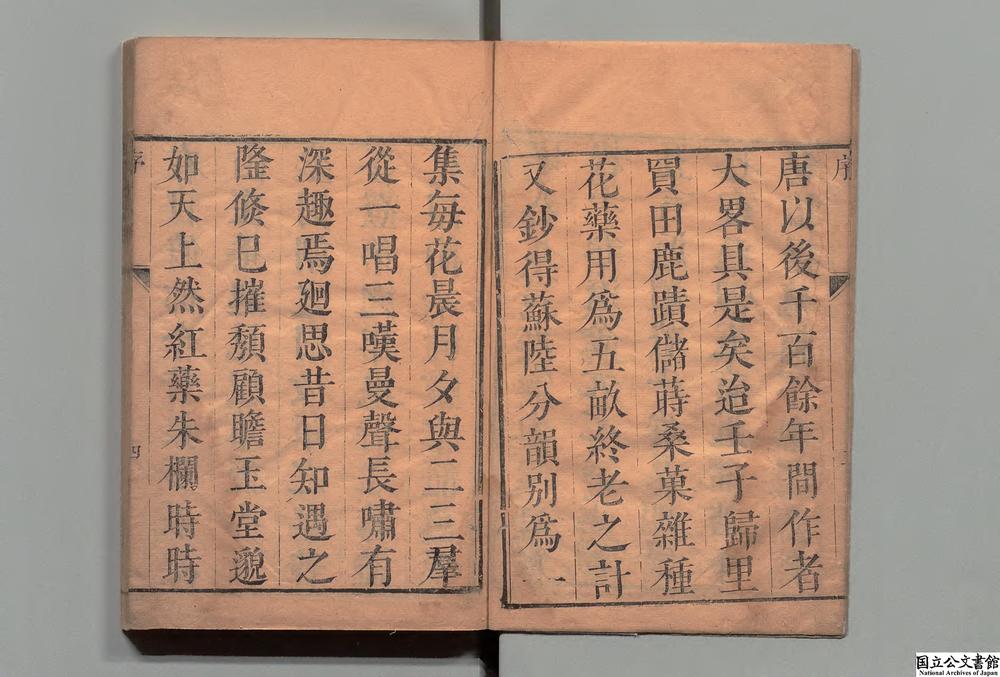 序
唐以後千百餘年間作者
大畧具是矣迨壬子歸里
買田鹿蹟儲蒔桑菓雜種
花藥用爲五畝終老之計
又鈔得蘇陸分韻别爲一
集每花晨月夕與二三羣
從一唱三嘆曼聲長嘯有
深趣焉廻思昔日知遇之
隆倐巳摧頽顧瞻玉堂邈
如天上然紅藥朱欄時時
序
四
国立公文書館
National Archives of Japan